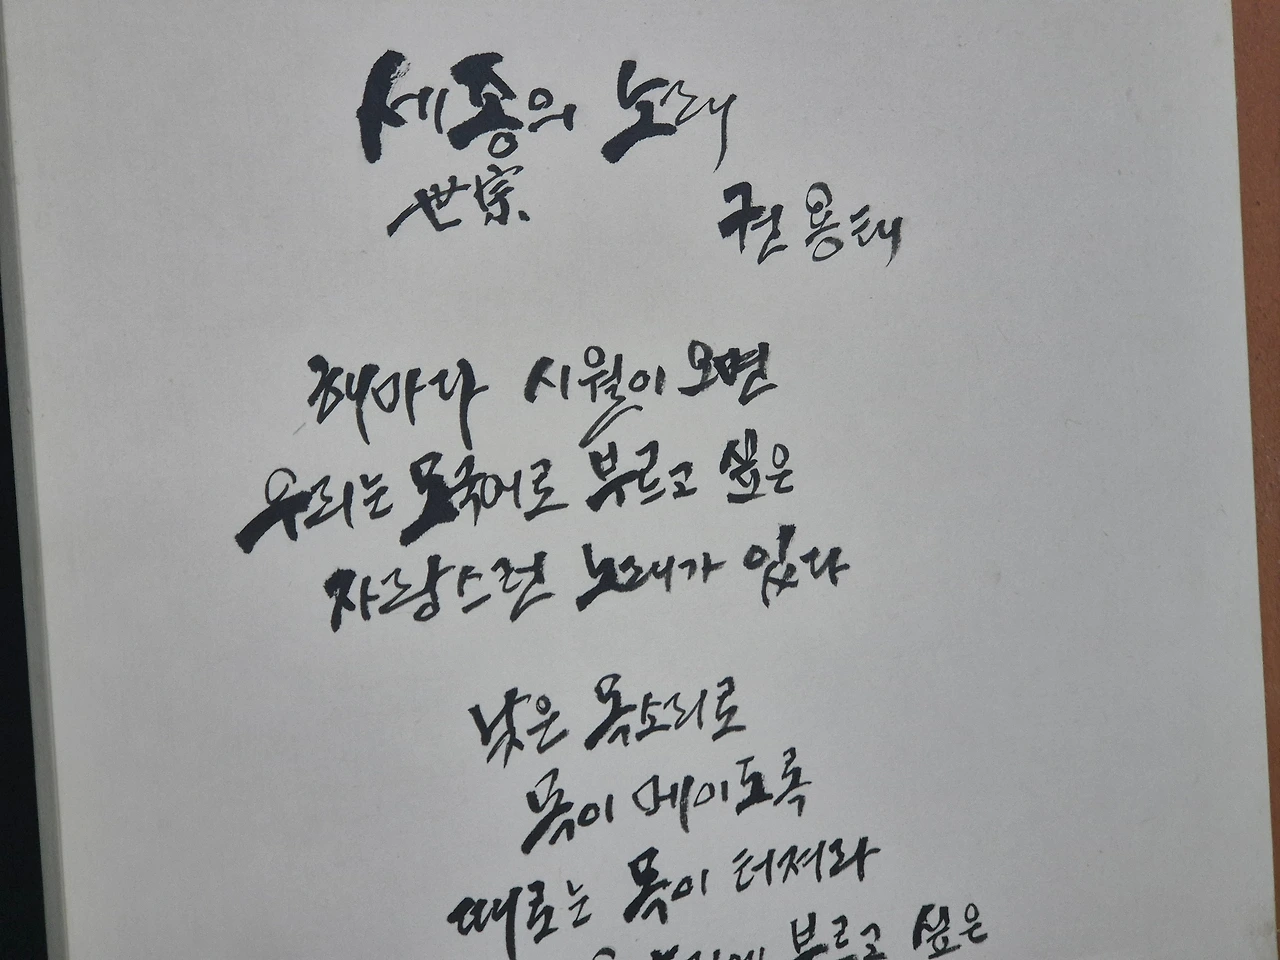 세종의 노래
世宗
권용태
해마다 시월이 오면
우리는 모국어로 부르고 싶은
자랑스런 노래가 있다
낮은 목소리로
목이 메이도록
때로는 목이 터져라
부르고 싶은